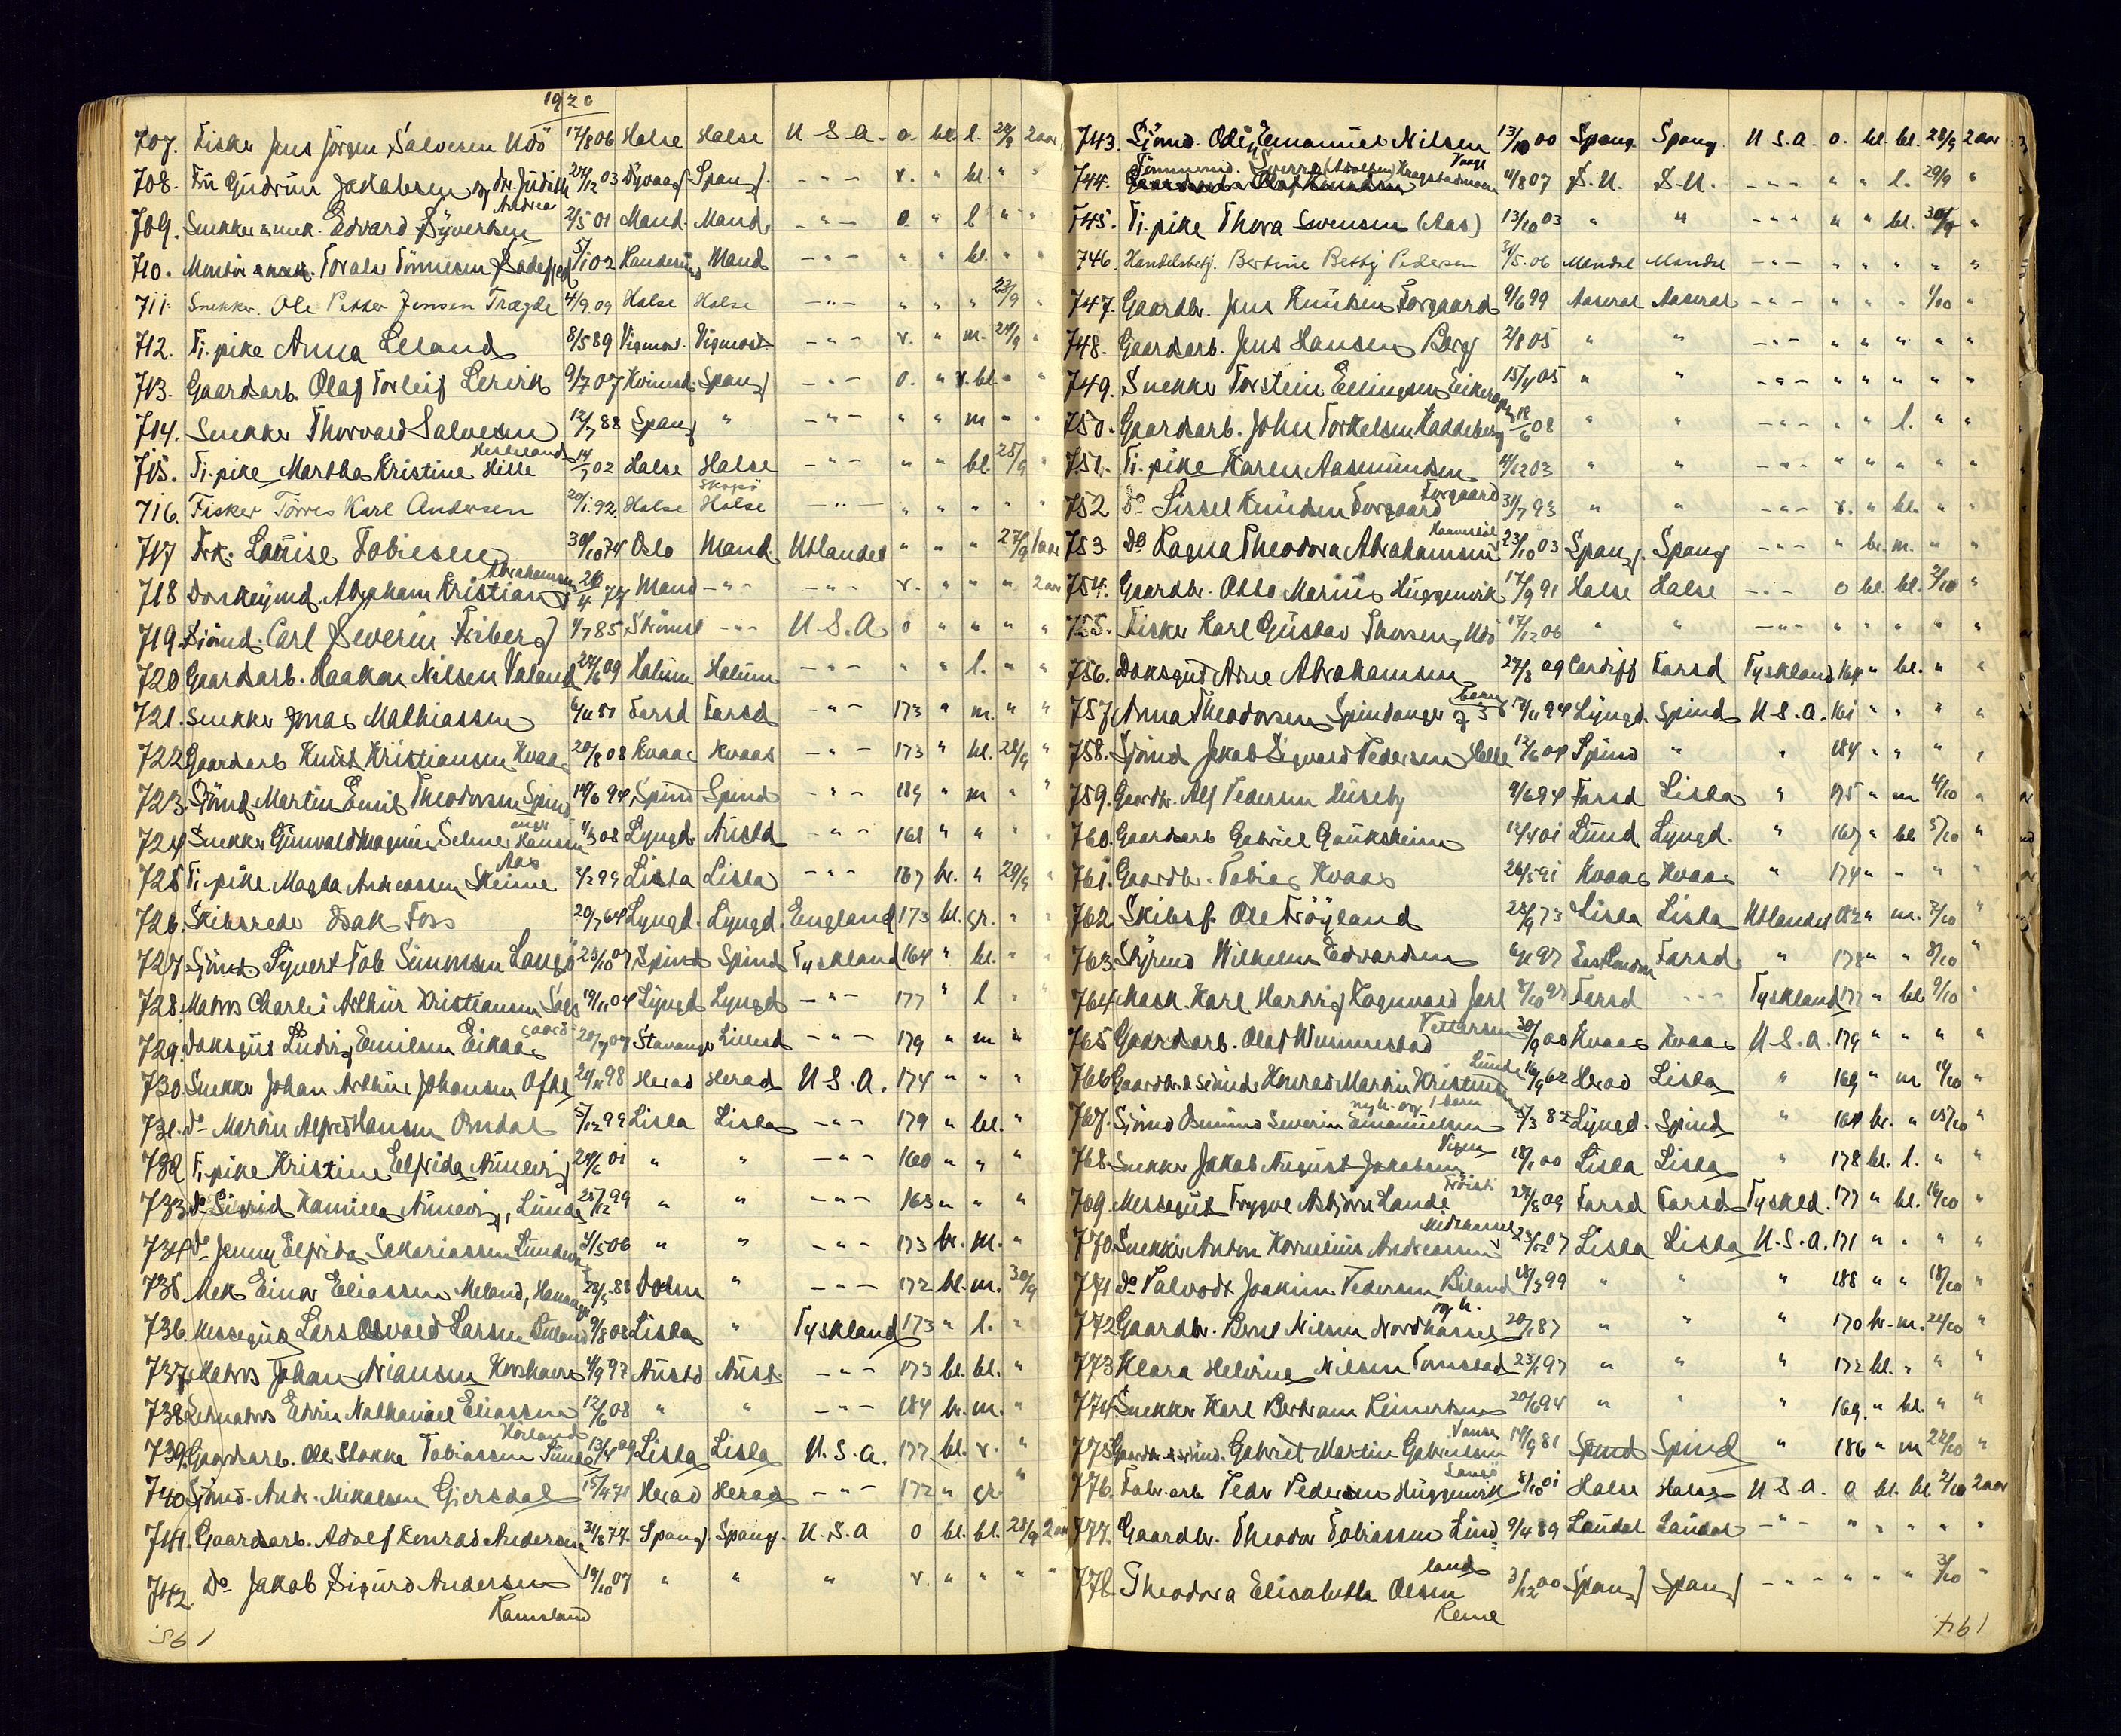 1920
707. Fisker Jens Jörgen Salvesen Udö 17/8 06 Halse Halse U S A. o. bl. l. 24/9 2 aar
708. Fru Gudrun Jakobsen og dtr. Judith Andrea 24/12 03 Dyvaag Spang. -"- v. " bl. " "
709. Snekker & mek. Edvard Syvertsen 2/5 01 Mand. Mand. -"- o. " l " "
710. Montör Toralv Tönnesen 5/1 02 Mand -"- " " bl. " "
711. Snekker. Ole Petter Jensen Trægde 4/9. 09 Halse Halse -"- " " " 23/9 "
712. Tj. pike Anna Leland 8/5 89 Vigmost. Vigmost. -"- v. " m. 24/9 "
713. Gaardsarb. Olaf Torleif Lervik 9/7 07 Kvinesd. Spang -"- o. " v. bl. " "
714. Snekker Thorvald Salvesen 12/7 88 Spang " -"- " " m " "
715. Tj. pike Martha Kristine Hille 14/7 02 Halse Halse -"- " " bl. 25/9 "
716. Fisker Törres Karl Andersen 20/1. 92. Halse Skogsö Halse -"- " " " " "
717 Frk. Louise Tobiesen 30/10 74 Oslo Mand. Utlandet " " " 27/9 1 aar
718 Donkeymd. Abraham Kristian Abrahamsen 26/4 77 Mand -"- -"- v. " " " 2 aar
719 Sjömd. Carl Severin Friberg 1/7 85 -"- U.S.A. o " " " "
720 Gaardsarb. Haakon Nilsen Valand 24/6 09 Halum Halum -"- " " l. " "
721. Snekker Jonas Mathiassen 6/11 81 Farsd Farsd -"- 173 " m. " "
722 Gaardsarb Knut Kristiansen Kvaas 20/8 08 Kvaas Kvaas -"- 173 " bl. 28/9 "
723. Sjömd. Martin Emil Theodorsen Spind anger 14/6 94 Spind Spind -"- 189 " m " "
724 Snekker Gunvald Magnus Selmer Hansen 1/3 08 Lyngd. Austd -"- 168 " " " "
725 Tj. pike Magda Andreassen Skeime Aas 3/2 99 Lista Lista -"- 167 br. " 29/9 "
726. Skibsreder Isak Foss 20/7 64 Lyngd. Lyngd. England 173 bl. gr. " "
727. Sjömd Syvert Tob Simonsen Langö 23/10 07 Spind Spind Tyskland 164 " bl. " "
728. Matros Charlie Arthur Kristiansen 19/11 04 Lyngd Lyngd -"- 177 " l " "
729. Daksgut Ludvig Emilsen Eikaas 20/7 07 Stavanger Lillesd -"- 179 " m "
730. Snekker Johan Arthur Johansen Ofte 24/11 98 Herad Herad U S. A. 174 " " "
731. do Martin Alfred Hansen Omdal 5/12 99 Lista Lista -"- 179 " bl. "
732 Tj. pike Kristine Elfrida Aunevig 24/6 01 " " -"- 160 " " "
733 do Sigrid Kamilla Aunevig, Lunde 25/12 99 " " -"- 163 " " "
734 do Jenny Elfrida Sakariassen Lunde 4/5 06 " " -"- 173 br. m. "
735. Mek Einar Eliassen Meland, 28/5. 88 " -"- 172 bl. m. 30/9
736. Messegut Lars Osvald Larsen 9/8 08 Lista " Tyskland 173 " l. "
737. Matros Johan Ariansen Korshavn 4/9 97 Austd Aust. -"- 173 bl. bl. "
738 Edvin Nathanael Eliassen 12/6 08 " " -"- 184 br. m. "
739. Gaardsarb. Ole Stokke Tobiassen Sunde 13/4 09 Lista Lista U. S. A. 177 bl. v. "
740 Sjömd. Andr. Mikalsen Gjersdal 15/4 71 Herad Herad -"- 172 " gr. "
741. Gaardsarb. Adolf Konrad Andersen 31/8 77. Spang. Spang. U. S. A o bl. bl. 28/9 2 aar
742. do Jakob Sigurd Andersen Ramsland 19/10 07 " " " v. " " " "
195
743. Sjömd. Odin Emanuel Nilsen 13/10 00 Spang. Spang. U S. A. o. bl. bl. 28/9 2 aar
744. Tömmermd. Sverre (Adolfsen) 11/8 07 S. U. S. U. -"- " " l. 29/9 "
745. Tj. pike Thora Svensen (Aas) 13/10 03 " " -"- " " bl. 30/9 "
746. Handelsbetj. Bertine Betby Pedersen 31/5. 06 Mandal Mandal -"- " " " " "
747. Gaardbr. Jens Knutsen Torgaard 9/6 99 Aaseral Aaseral -"- " " " 1/10 "
748. Gaardsarb. Jens Hansen Berg 2/8 05 " " -"- " " " " "
749. Snekker Torstein Ellingsen Eikerapen 15/4 05 " " -"- " " " " "
750. Gaardsarb. John Torkelsen Haddeberg 18/6 08 " " -"- " " l. " "
751. Tj. pike Karen Aasmundsen 4/12 03 " " -"- " " " " "
752 do Sissel Knudsen Torgaard 31/7 93 " " -"- v. " bl. " "
753. do Ragna Theodora Abrahamsen 23/10 03 Spang. Spang -"- " br. m. " "
754. Gaardbr. Otto Marius Huggenvik 17/9 91 Halse Halse -"- o bl. bl. 2/10 "
755. Fisker Karl Gustav Thorsen, Udö 17/12 06 " " -"- " " " " "
756. Daksgut Arne Abrahamsen 27/8 09 Cardiff Farsd Tyskland 164 " bl. " "
757 Anna Theodorsen Spindanger 17/11 94 Lyngd. Spind U S. A. 161 " " " "
758. Sjömd Jakob Sigvald Pedersen Helle 12/6 04 Spind " " 184 " " " "
759. Gaardbr. Alf Pedersen Huseby 9/6 94 Farsd Lista " 175 " m 4/10 "
760. Gaardsarb Gabriel Gauksheim 12/4 01 Lund Lyngd. " 167 " bl 5/10 "
761. Gaardbr. Tobias Kvaas 26/5 91 Kvaas Kvaas " 174 " " " "
762 Skibsf. Ole Tröyland 28/9 73 Lista Lista Utlandet 182 " m. 7/10 "
763. Styrmd Wilhelm Edvardsen 6/11 97 East London Farsd " 178 " " 8/10 "
764 Mask. Karl Hartvig Ragnvald Jarl Farsd -"- Tyskland 177 " bl 9/10 "
765 Gaardsarb. Olaf Wummestad 30/9 00 Kvaas Kvaas U S. A. 179 " " " "
766 Gaardbr. & Sjömd Konrad Martin Kristensen Lunde 16/9 62 Herad Lista " 169 " m 11/10 "
767. Sjömd Osmund Severin Emanuelsen 5/3 82 Lyngd. Spind " 164 br. " 15/10 "
768. Snekker Jakob August Jakobsen 18/1 00 Lista Lista " 178 bl. l. " "
769. Messegut Trygve Asbjörn Lande 27/8 09 Farsd Farsd Tyskld. 177 " bl. 16/10 "
770 Snekker Anton Kornelius Andreassen 23/12 07 Lista Lista U. S. A. 171 " " " "
771 do Valvodt Joakim Pedersen Biland 18/3 99 " " " 188 " " 18/10 "
772 Gaardbr. Bernt Nilsen Nordhassel 20/1 87 " " " 170 br. m. 21/10 "
773 Klara Helvine Nilsen Tomstad 23/1 97 " " " 172 bl. " " "
774 Snekker Karl Bertram Reinertsen 20/6 94 " " " 169. " bl. " "
775 Gaardbr. & Sjömd. Gabriel Martin Gabrielsen 19/9 81 Spind Spind " 186 " m 22/10 "
776. Fabr. arb. Peder Pedersen Huggenvik 8/10 01 Halse Halse U S A. o bl. bl 2/10 2 aar
777. Gaardbr. Theodor Tobiassen Lindland 9/4 89 Laudal Laudal -"- " " " " "
778. Theodora Elisabeth Olsen Reme 3/12 00 Spang Spang -"- " " " 3/10 "
194